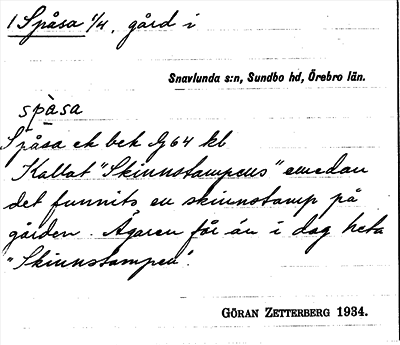 1 Spåsa 1/4, gård i
Snavlunda s:n, Sundbo hd, Örebro län.
spàsa
Spåsa ek bek Jg 64 kl
Kallat "Skinnstampens" emedan
det funnits en skinnstamp på
gården. Ägaren får än i dag heta
"Skinnstampen".
GÖRAN ZETTERBERG 1934.